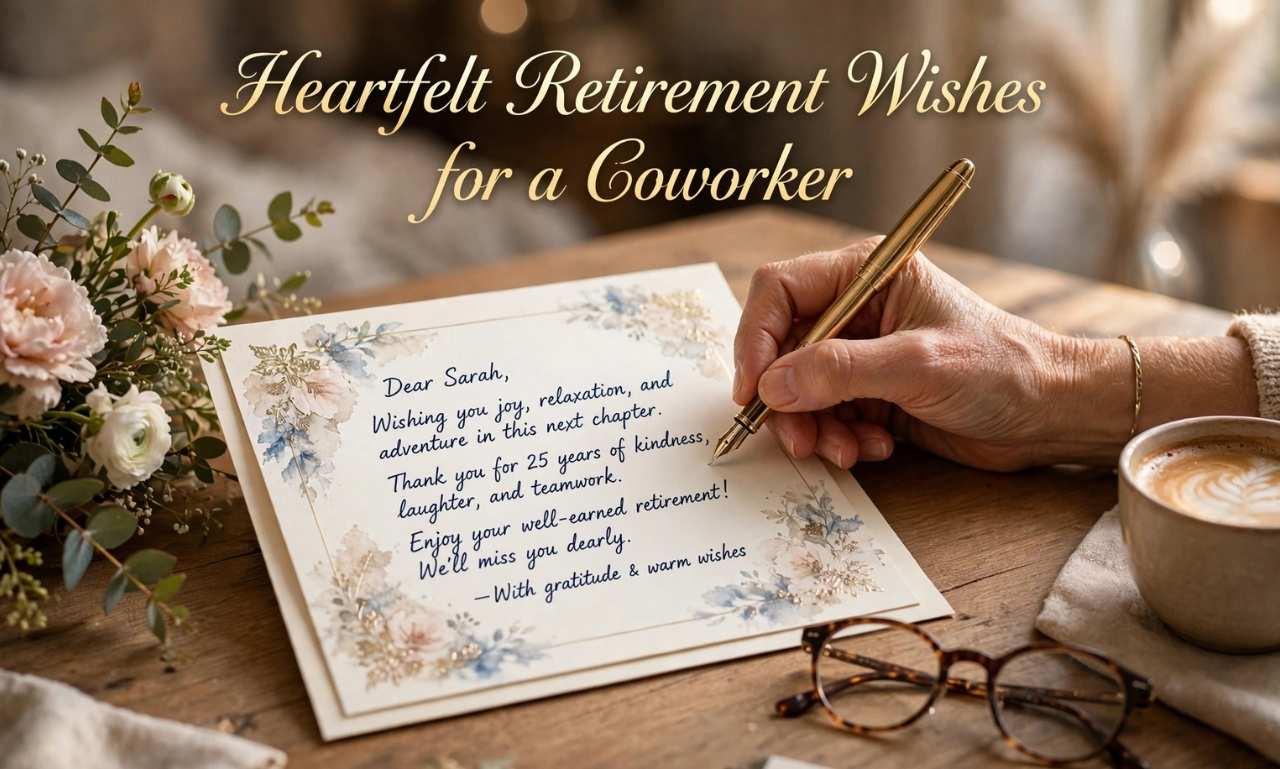 Heartfelt Retirement Wishes
for a Coworker
Dear Sarah,
Wishing you joy, relaxation, and
adventure in this next chapter.
Thank you for 25 years of kindness,
laughter, and teamwork.
Enjoy your well-earned retirement!
We'll miss you dearly.
—With gratitude & warm wishes